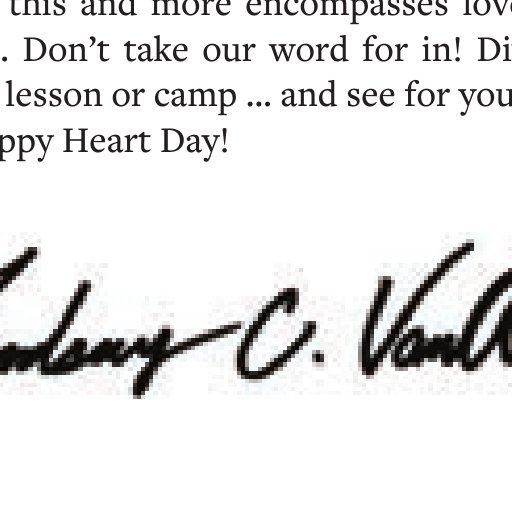 this and more encompasses lov
. Don’t take our word for in! Di
lesson or camp ... and see for you
ppy Heart Day!
C.